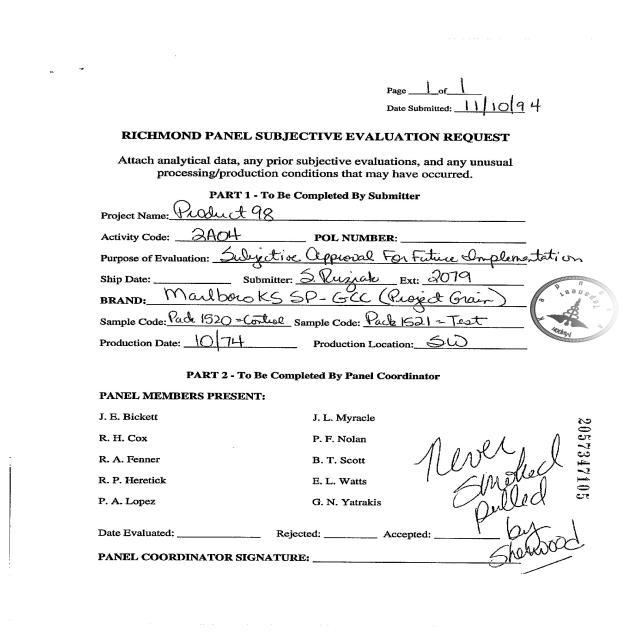 Page 1 of 1
Date Submitted: 11/10/94
RICHMOND PANEL SUBJECTIVE EVALUATION REQUEST
Attach analytical data, any prior subjective evaluations, and any unusual
processing/production conditions that may have occurred.
PART 1 - To Be Completed By Submitter
Project Name: Product 98
Activity Code: 2A04 POL NUMBER:
Purpose of Evaluation: Subjective Approval For Future Implementation
Ship Date: Submitter: S. Ruziak Ext: 2079
BRAND: Marlboro KS SP-GCC (Project Grain)
Sample Code: Pack 1520 = Control Sample Code: Pack 1521 = Test
Production Date: 10/74 Production Location: SW
PART 2 - To Be Completed By Panel Coordinator
PANEL MEMBERS PRESENT:
J. E. Bickett J. L. Myracle
R. H. Cox P. F. Nolan
R. A. Fenner B. T. Scott
R. P. Heretick E. L. Watts
P. A. Lopez G. N. Yatrakis
Never
smoked
pulled
by
Sherwood
2057347105
Date Evaluated: Rejected: Accepted:
PANEL COORDINATOR SIGNATURE: